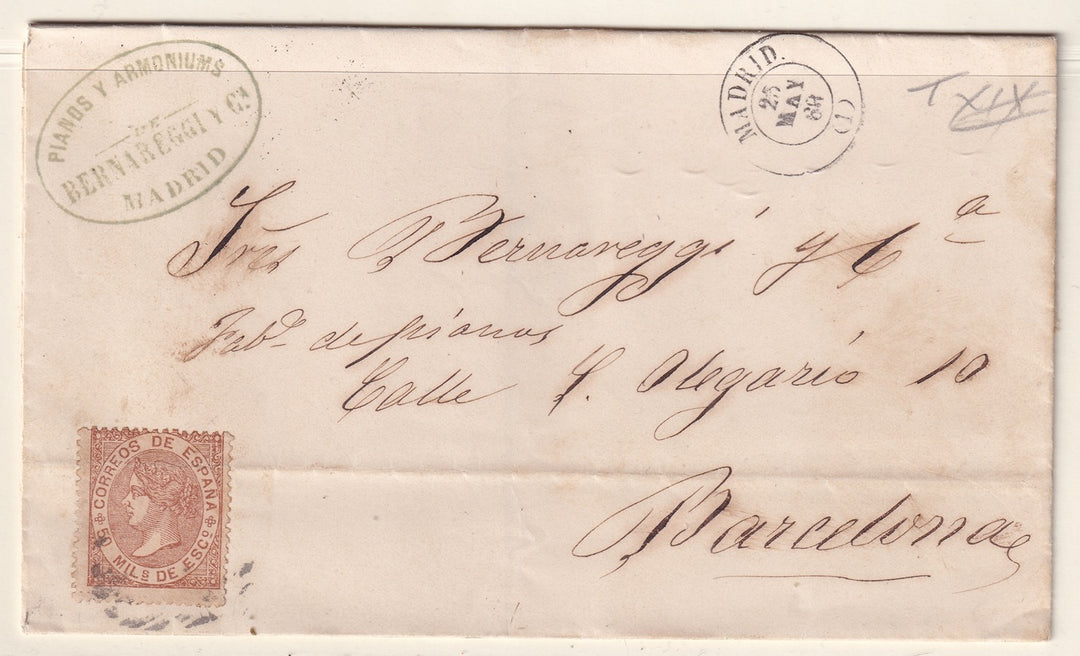 PIANOS Y ARMONIUMS
DE
BERNAREGGI Y Cª
MADRID
MADRID.
25
MAY
69
(1)
T XIX
Sres Bernareggi y Cª
Fabs de pianos
Calle S. Olegario 10
Barcelona
CORREOS DE ESPAÑA
50 MILS DE ESCO